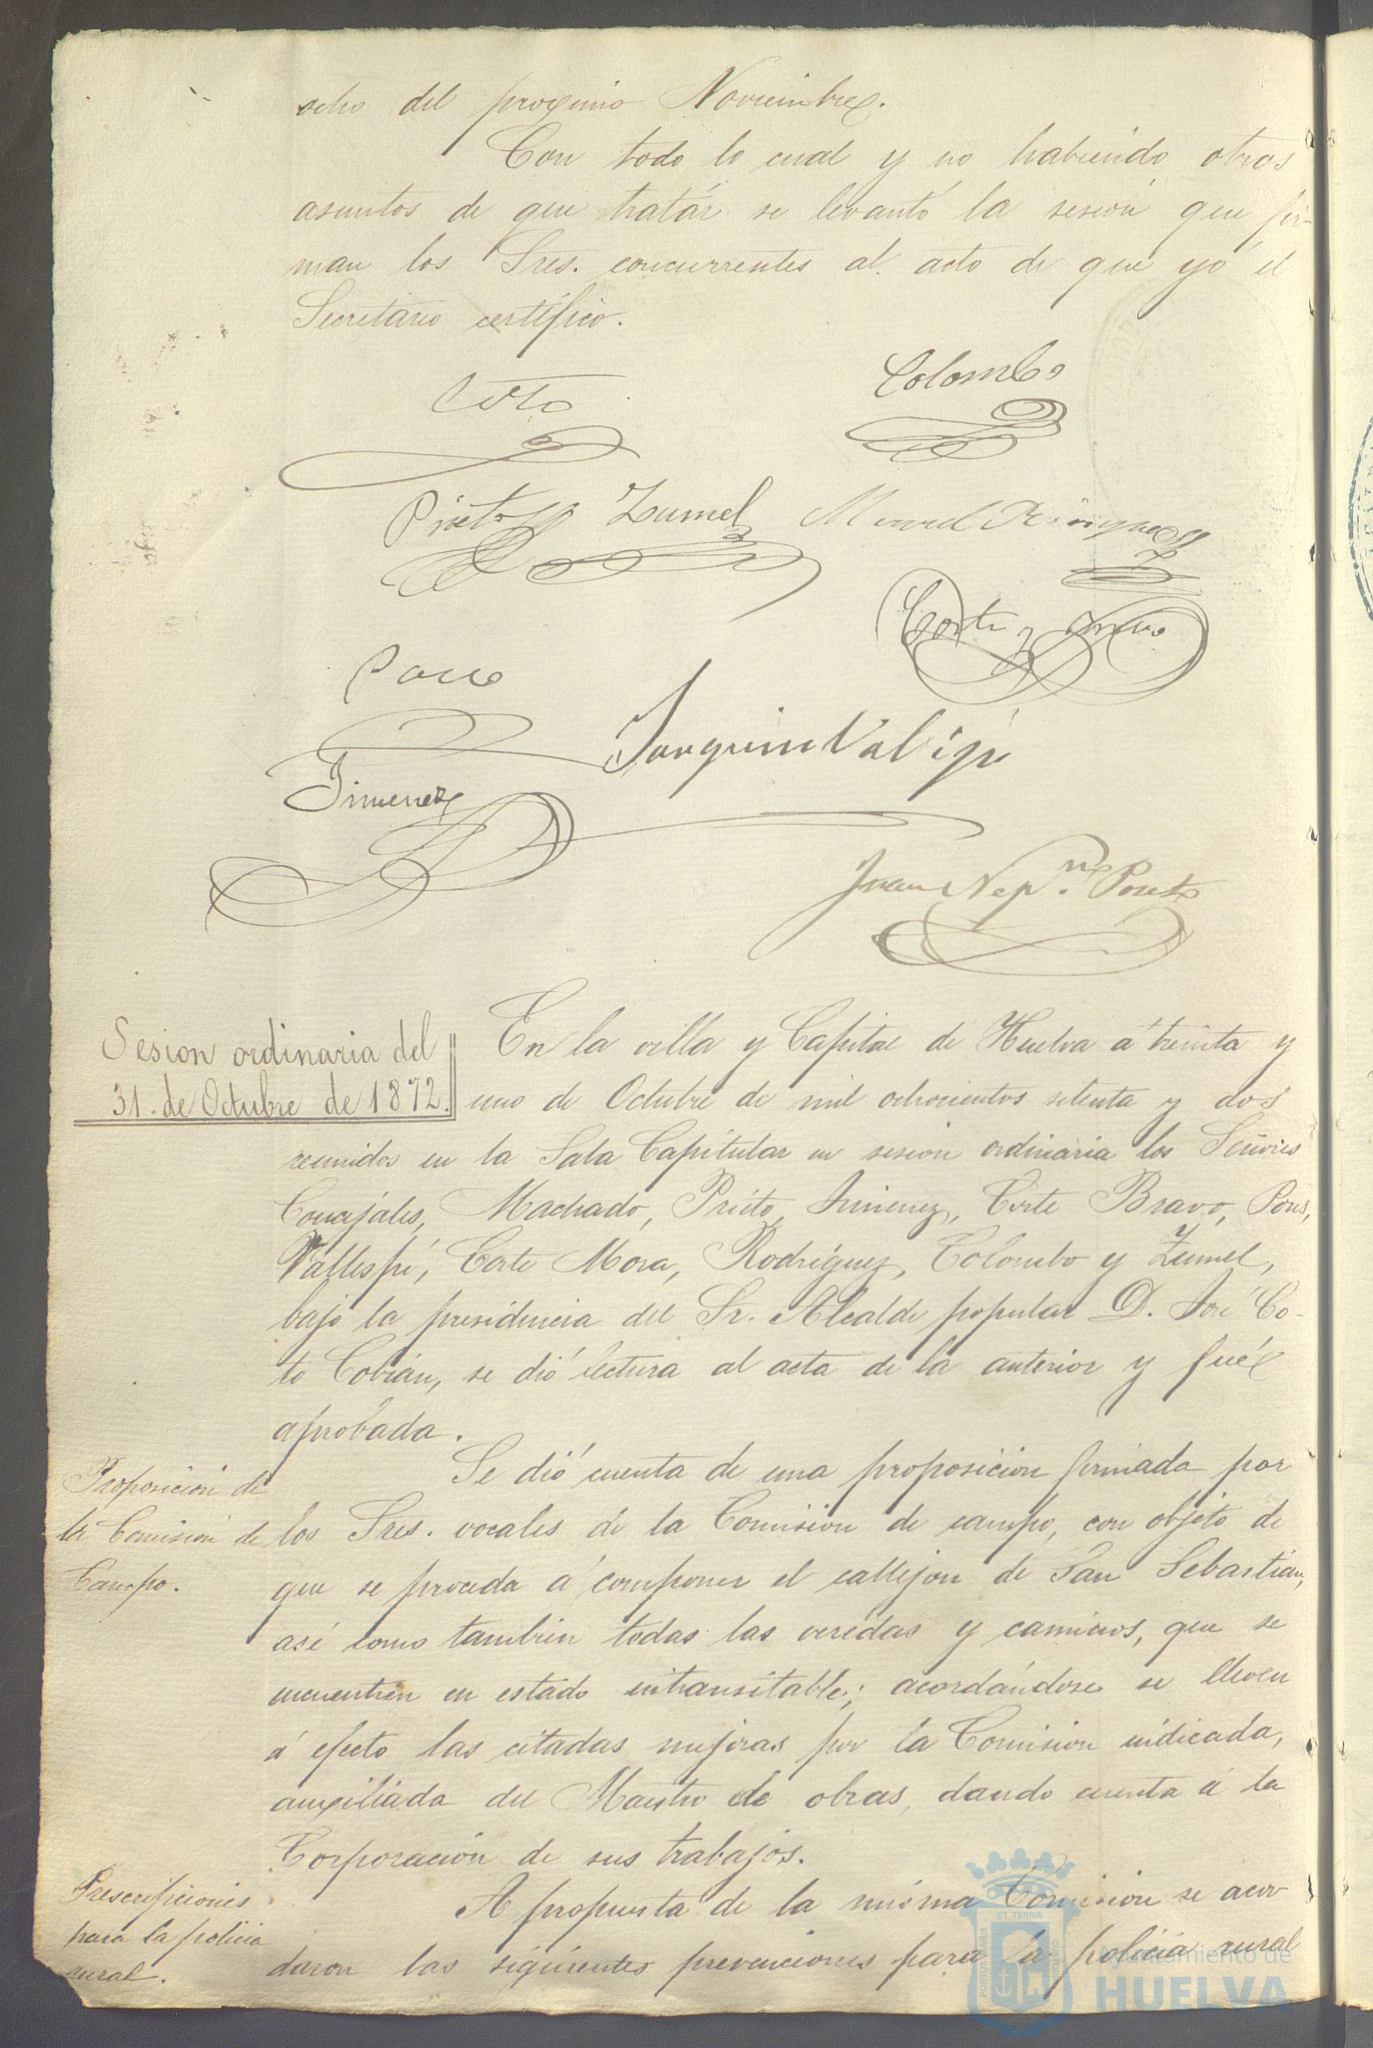 ocho del proximo Noviembre.
Con todo lo cual y no habiendo otros
asuntos de que tratár se levantó la sesión que fir-
man los Sres. concurrentes al acto de que yó el
Secretario certifico.
Coto
Colombo
Prieto
Zumel
Manuel Rodriguez
Corte y Bravo
Pons
Joaquin Vallespi
Jimenez
Juan Nep.no
Sesion ordinaria del
31. de Octubre de 1872.
En la villa y Capital de Huelva á treinta y
uno de Octubre de mil ochocientos setenta y dos
reunidos en la Sala Capitular en sesion ordinaria los Señores
Concejales, Machado, Prieto, Jimenez, Corte Bravo, Pons,
Vallespí, Corte Mora, Rodríguez, Colombo y Zumel,
bajo la presidencia del Sr. Alcalde popular D. José Co-
to Cobián, se dió lectura al acta de la anterior y fué
aprobada.
Proposicion de
la Comision de
Campo.
Se dió cuenta de una proposicion firmada por
los Sres. vocales de la Comision de campo, con objeto de
que se proceda á componer el callejon de San Sebastian,
asi como tambien todas las veredas y caminos, que se
encuentren en estado intransitable; acordándose se lleven
á efecto las citadas mejoras por la Comision indicada,
auxiliada del Maestro de obras, dando cuenta á la
Corporación de sus trabajos.
Prescripciones
para la policia
rural.
A propuesta de la misma Comision se acor
daron las siguientes prevenciones para la policia rural
Ayuntamiento de
HUELVA